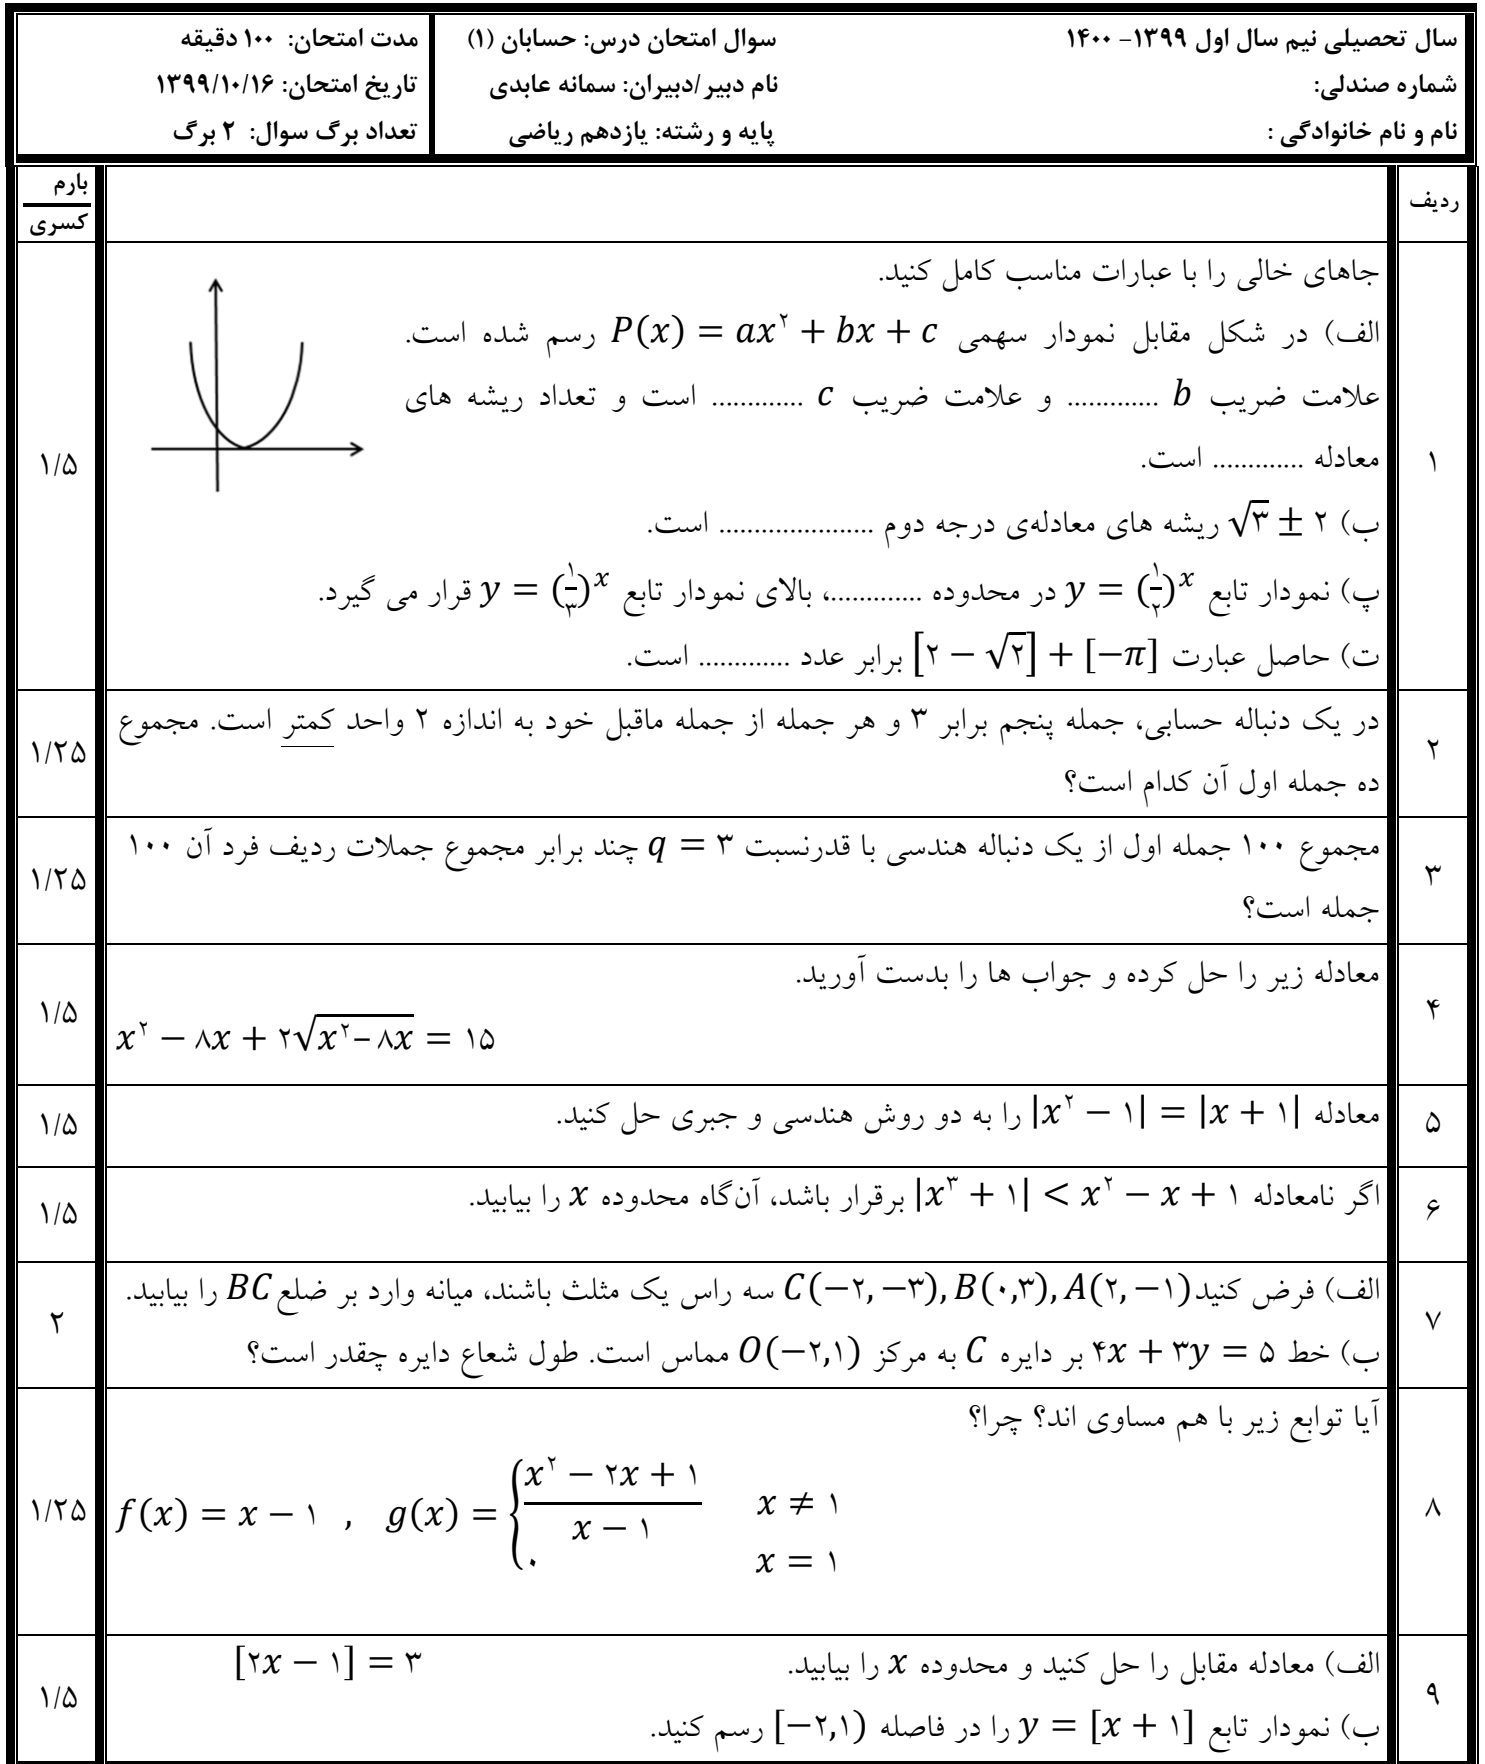 سال تحصیلی نیم سال اول ۱۳۹۹- ۱۴۰۰
شماره صندلی:
نام و نام خانوادگی :
سوال امتحان درس: حسابان (۱)
نام دبیر/دبیران: سمانه عابدی
پایه و رشته: یازدهم ریاضی
مدت امتحان: ۱۰۰ دقیقه
تاریخ امتحان: ۱۳۹۹/۱۰/۱۶
تعداد برگ سوال: ۲ برگ
ردیف
بارم
کسری
۱
جاهای خالی را با عبارات مناسب کامل کنید.
الف) در شکل مقابل نمودار سهمی P(x) = ax^۲ + bx + c رسم شده است.
علامت ضریب b ............. و علامت ضریب c ............. است و تعداد ریشه های
معادله ............. است.
ب) ۲ ± √۳ ریشه های معادله‌ی درجه دوم ...................... است.
پ) نمودار تابع y = (۱/۲)^x در محدوده .............، بالای نمودار تابع y = (۱/۳)^x قرار می گیرد.
ت) حاصل عبارت [۲ − √۲] + [−π] برابر عدد ............. است.
۱/۵
۲
در یک دنباله حسابی، جمله پنجم برابر ۳ و هر جمله از جمله ماقبل خود به اندازه ۲ واحد کمتر است. مجموع
ده جمله اول آن کدام است؟
۱/۲۵
۳
مجموع ۱۰۰ جمله اول از یک دنباله هندسی با قدرنسبت q = ۳ چند برابر مجموع جملات ردیف فرد آن ۱۰۰
جمله است؟
۱/۲۵
۴
معادله زیر را حل کرده و جواب ها را بدست آورید.
x^۲ − ۸x + ۲√(x^۲ − ۸x) = ۱۵
۱/۵
۵
معادله |x^۲ − ۱| = |x + ۱| را به دو روش هندسی و جبری حل کنید.
۱/۵
۶
اگر نامعادله |x^۳ + ۱| < x^۲ − x + ۱ برقرار باشد، آن‌گاه محدوده x را بیابید.
۱/۵
۷
الف) فرض کنید C(−۲, −۳), B(۰,۳), A(۲, −۱) سه راس یک مثلث باشند، میانه وارد بر ضلع BC را بیابید.
ب) خط ۴x + ۳y = ۵ بر دایره C به مرکز O(−۲,۱) مماس است. طول شعاع دایره چقدر است؟
۲
۸
آیا توابع زیر با هم مساوی اند؟ چرا؟
f(x) = x − ۱ , g(x) = { (x^۲ − ۲x + ۱)/(x − ۱) x ≠ ۱
۰ x = ۱
۱/۲۵
۹
الف) معادله مقابل را حل کنید و محدوده x را بیابید. [۲x − ۱] = ۳
ب) نمودار تابع y = [x + ۱] را در فاصله [−۲,۱) رسم کنید.
۱/۵